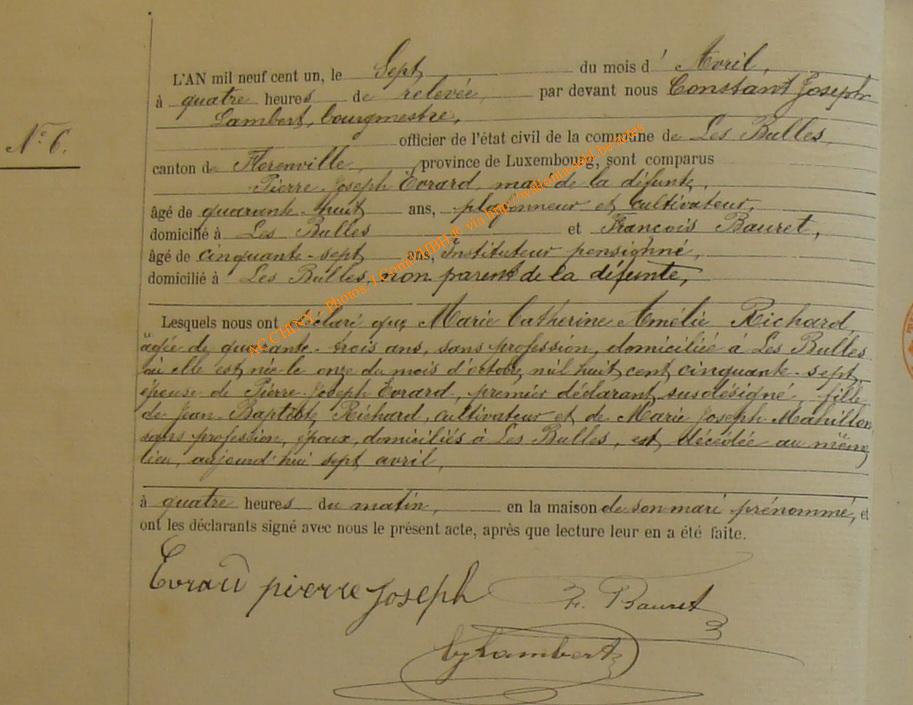 L'AN mil neuf cent un, le Sept du mois d' Avril,
à quatre heures de relevée, par devant nous Constant Joseph
Lambert, bourgmestre,
N° 6.
officier de l'état civil de la commune de Les Bulles,
canton de Florenville, province de Luxembourg, sont comparus
Pierre Joseph Evrard, mari de la défunte,
âgé de quarante-huit ans, plafonneur et cultivateur,
domicilié à Les Bulles et François Bauret,
âgé de cinquante-sept ans, Instituteur pensionné
domicilié à Les Bulles, non parent de la défunte,
Lesquels nous ont déclaré que Marie Catherine Amélie Richard,
âgée de quarante-trois ans, sans profession, domiciliée à Les Bulles
où elle est née le onze du mois d'octobre mil huit cent cinquante-sept
épouse de Pierre-Joseph Evrard, premier déclarant susdésigné, fille
de Jean-Baptiste Richard, cultivateur et de Marie Joseph Mahillon
sans profession, époux, domiciliés à Les Bulles, est décédée au même
lieu, aujourd'hui sept avril,
à quatre heures du matin, en la maison de son mari prénommé, et
ont les déclarants signé avec nous le présent acte, après que lecture leur en a été faite.
Evrard pierre Joseph
F. Bauret
Lambert